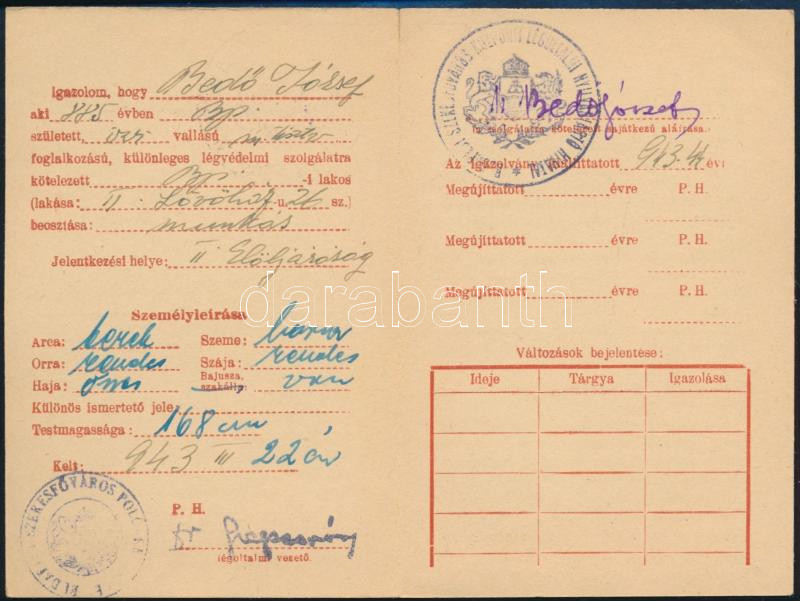 Igazolom, hogy Bedő József
aki 885 évben Bp.
született, vallású
foglalkozású, különleges légvédelmi szolgálatra
kötelezett Bp. -i lakos
(lakása: II. u. 26 sz.)
beosztása: munkás
Jelentkezési helye: II. Elöljáróság
Személyleírása
Arca: kerek Szeme: barna
Orra: rendes Szája: rendes
Haja: őszes Bajusza, szakálla van
Különös ismertető jele:
Testmagassága: 168 cm
Kelt: 943 III 22 én
P. H.
dr
légoltalmi vezető.
SZÉKESFŐVÁROS
SZÉKESFŐVÁROS KÖZPONTI LÉGOLTALMI HIVATAL
Bedő József
Az szolgálatra kötelezett sajátkezű aláírása.
Az igazolvány kiállíttatott 943. évi
Megújíttatott évre P. H.
Megújíttatott évre P. H.
Megújíttatott évre P. H.
Változások bejelentése:
Ideje Tárgya Igazolása
darabanth